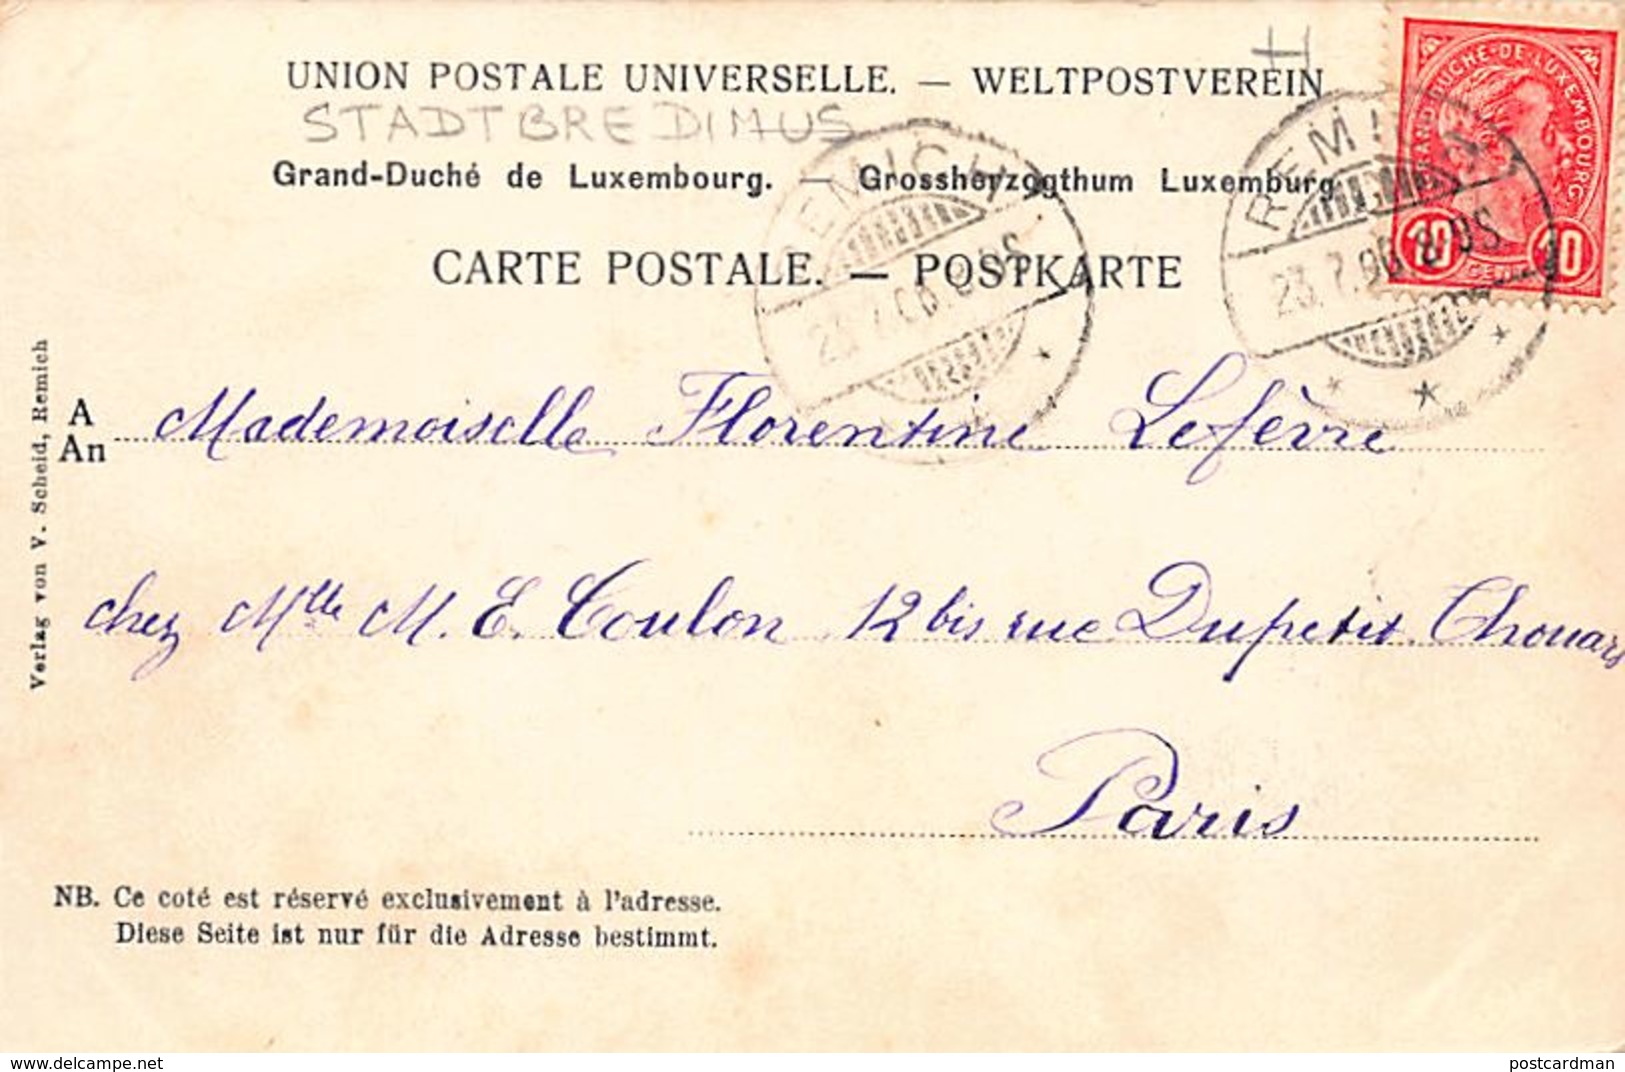 UNION POSTALE UNIVERSELLE. — WELTPOSTVEREIN
STADTBREDIMUS
Grand-Duché de Luxembourg. — Grossherzogthum Luxemburg
CARTE POSTALE. — POSTKARTE
GRAND-DUCHÉ-DE-LUXEMBOURG
10 CENT. 10
REMICH
REMICH
23.7.06. 8-9S
A
An Mademoiselle Florentine Lefèvre
chez Mlle M. E. Coulon 12 bis rue Dupetit Chouars
Paris
NB. Ce coté est réservé exclusivement à l'adresse.
Diese Seite ist nur für die Adresse bestimmt.
Verlag von V. Scheid, Remich
https://www.delcampe.net
postcardman